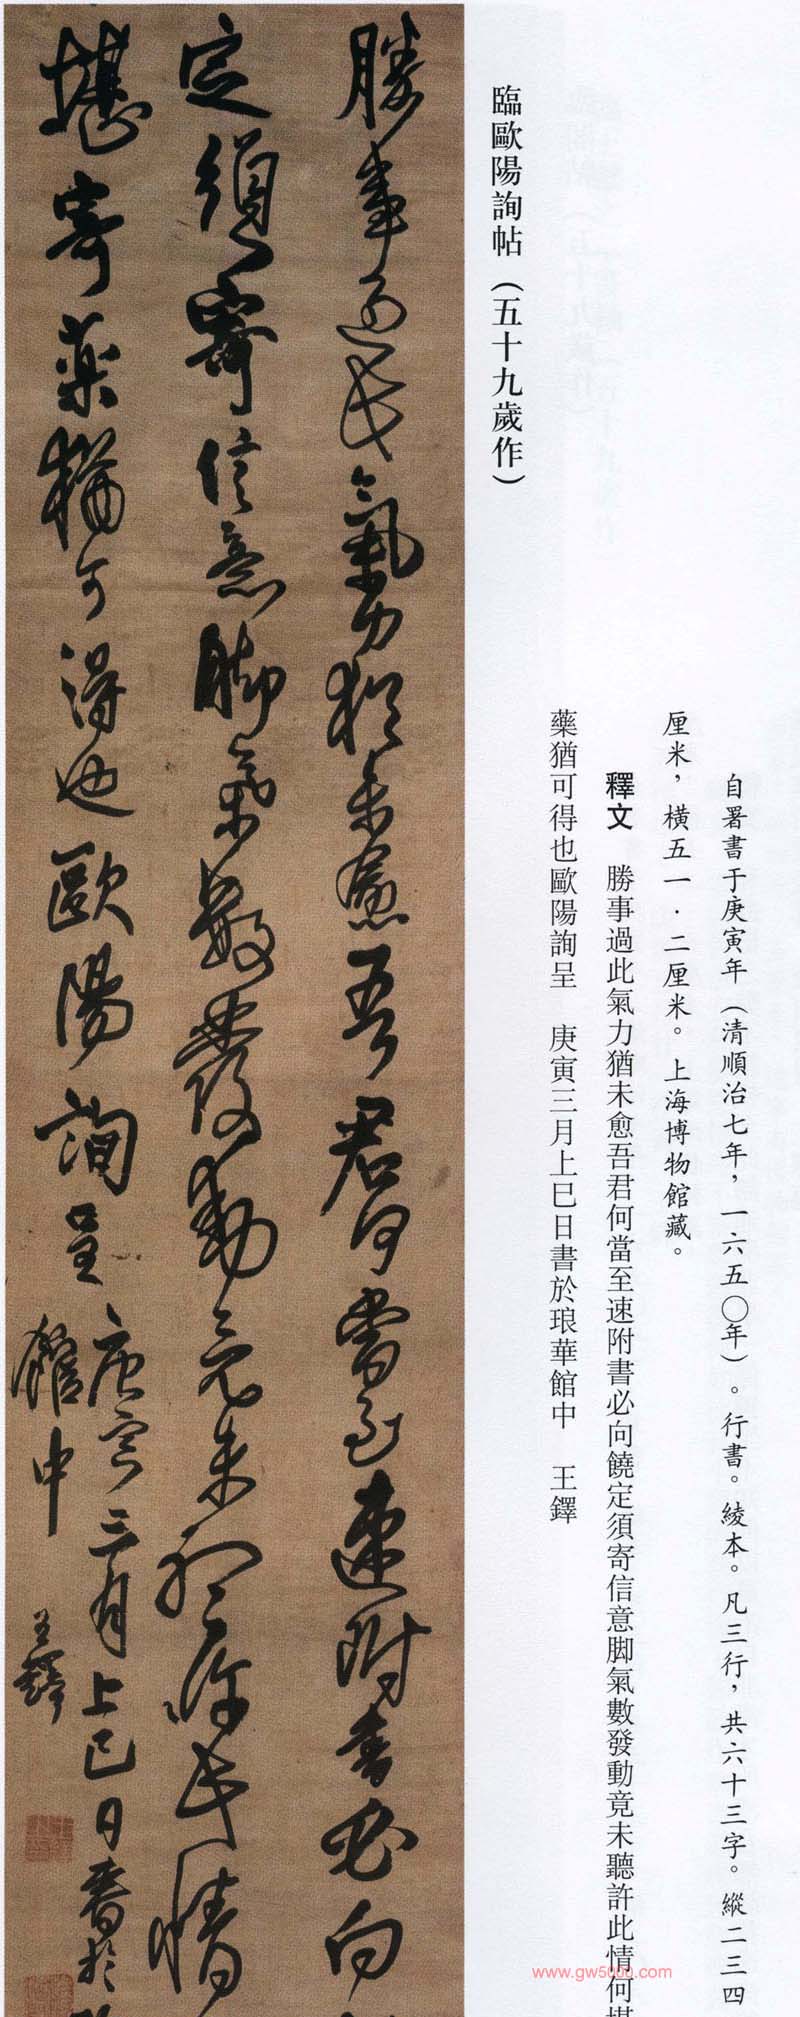 臨歐陽詢帖（五十九歲作）
自署書于庚寅年（清順治七年，一六五〇年）。行書。綾本。凡三行，共六十三字。縱二三四
厘米，橫五一．二厘米。上海博物館藏。
釋文　勝事過此氣力猶未愈吾君何當至速附書必向饒定須寄信意脚氣數發動竟未聽許此情何
藥猶可得也歐陽詢呈　庚寅三月上巳日書於琅華館中　王鐸
勝事過此氣力猶未愈吾君何當至速附書必向
定須寄信意脚氣數發動竟未聽許此情
堪寄藥猶可得也歐陽詢呈
庚寅三月上巳日書於
館中　王鐸
www.gw5000.com